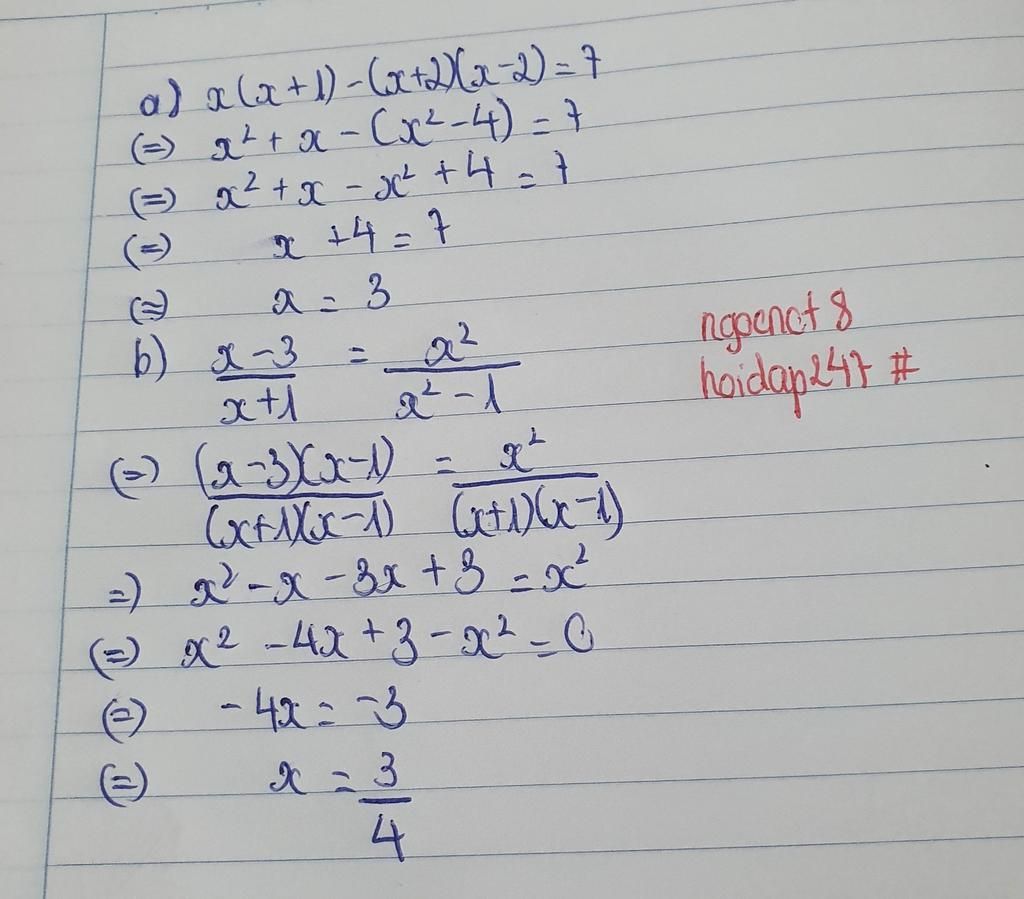 a) x(x+1)-(x+2)(x-2)=7
(=) x²+x-(x²-4)=7
(=) x²+x-x²+4=7
(=) x+4=7
(=) x=3
b) \frac{x-3}{x+1} = \frac{x²}{x²-1}
(=) \frac{(x-3)(x-1)}{(x+1)(x-1)} = \frac{x²}{(x+1)(x-1)}
=) x²-x-3x+3=x²
(=) x²-4x+3-x²=0
(=) -4x=-3
(=) x=\frac{3}{4}
ngocnct8
hoidap247 #